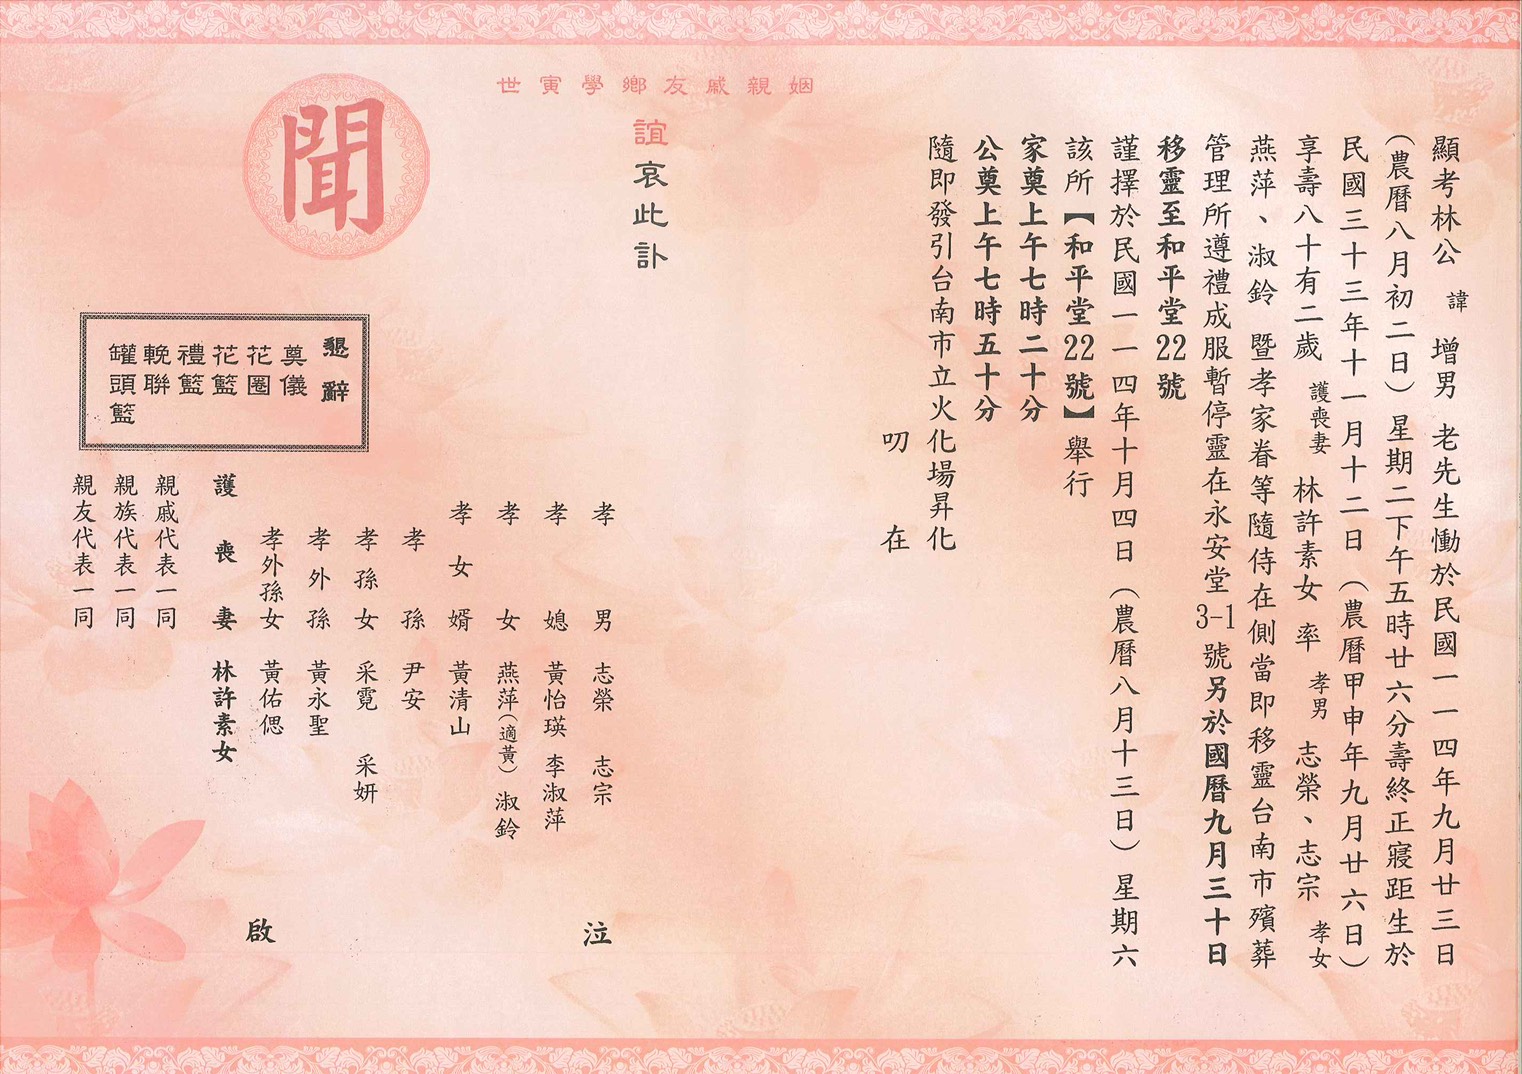 顯考林公 諱 增男 老先生慟於民國一一四年九月廿三日
（農曆八月初二日）星期二下午五時廿六分壽終正寢距生於
民國三十三年十一月十二日（農曆甲申年九月廿六日）
享壽八十有二歲 護喪妻 林許素女 率 孝男 志榮、志宗 孝女
燕萍、淑鈴 暨孝家眷等隨侍在側當即移靈台南市殯葬
管理所遵禮成服暫停靈在永安堂3-1號另於國曆九月三十日
移靈至和平堂22號
謹擇於民國一一四年十月四日（農曆八月十三日）星期六
該所【和平堂22號】舉行
家奠上午七時二十分
公奠上午七時五十分
隨即發引台南市立火化場昇化
叨 在
姻親戚友鄉學寅世
誼哀此訃
聞
孝男 志榮 志宗
孝媳 黃怡瑛 李淑萍
孝女 燕萍（適黃） 淑鈴
孝女婿 黃清山
孝孫 尹安
孝孫女 采霓 采妍
孝外孫 黃永聖
孝外孫女 黃佑偲
護喪妻 林許素女
泣
啟
親戚代表一同
親族代表一同
親友代表一同
懇辭
奠儀
花圈
花籃
禮籃
輓聯
罐頭籃